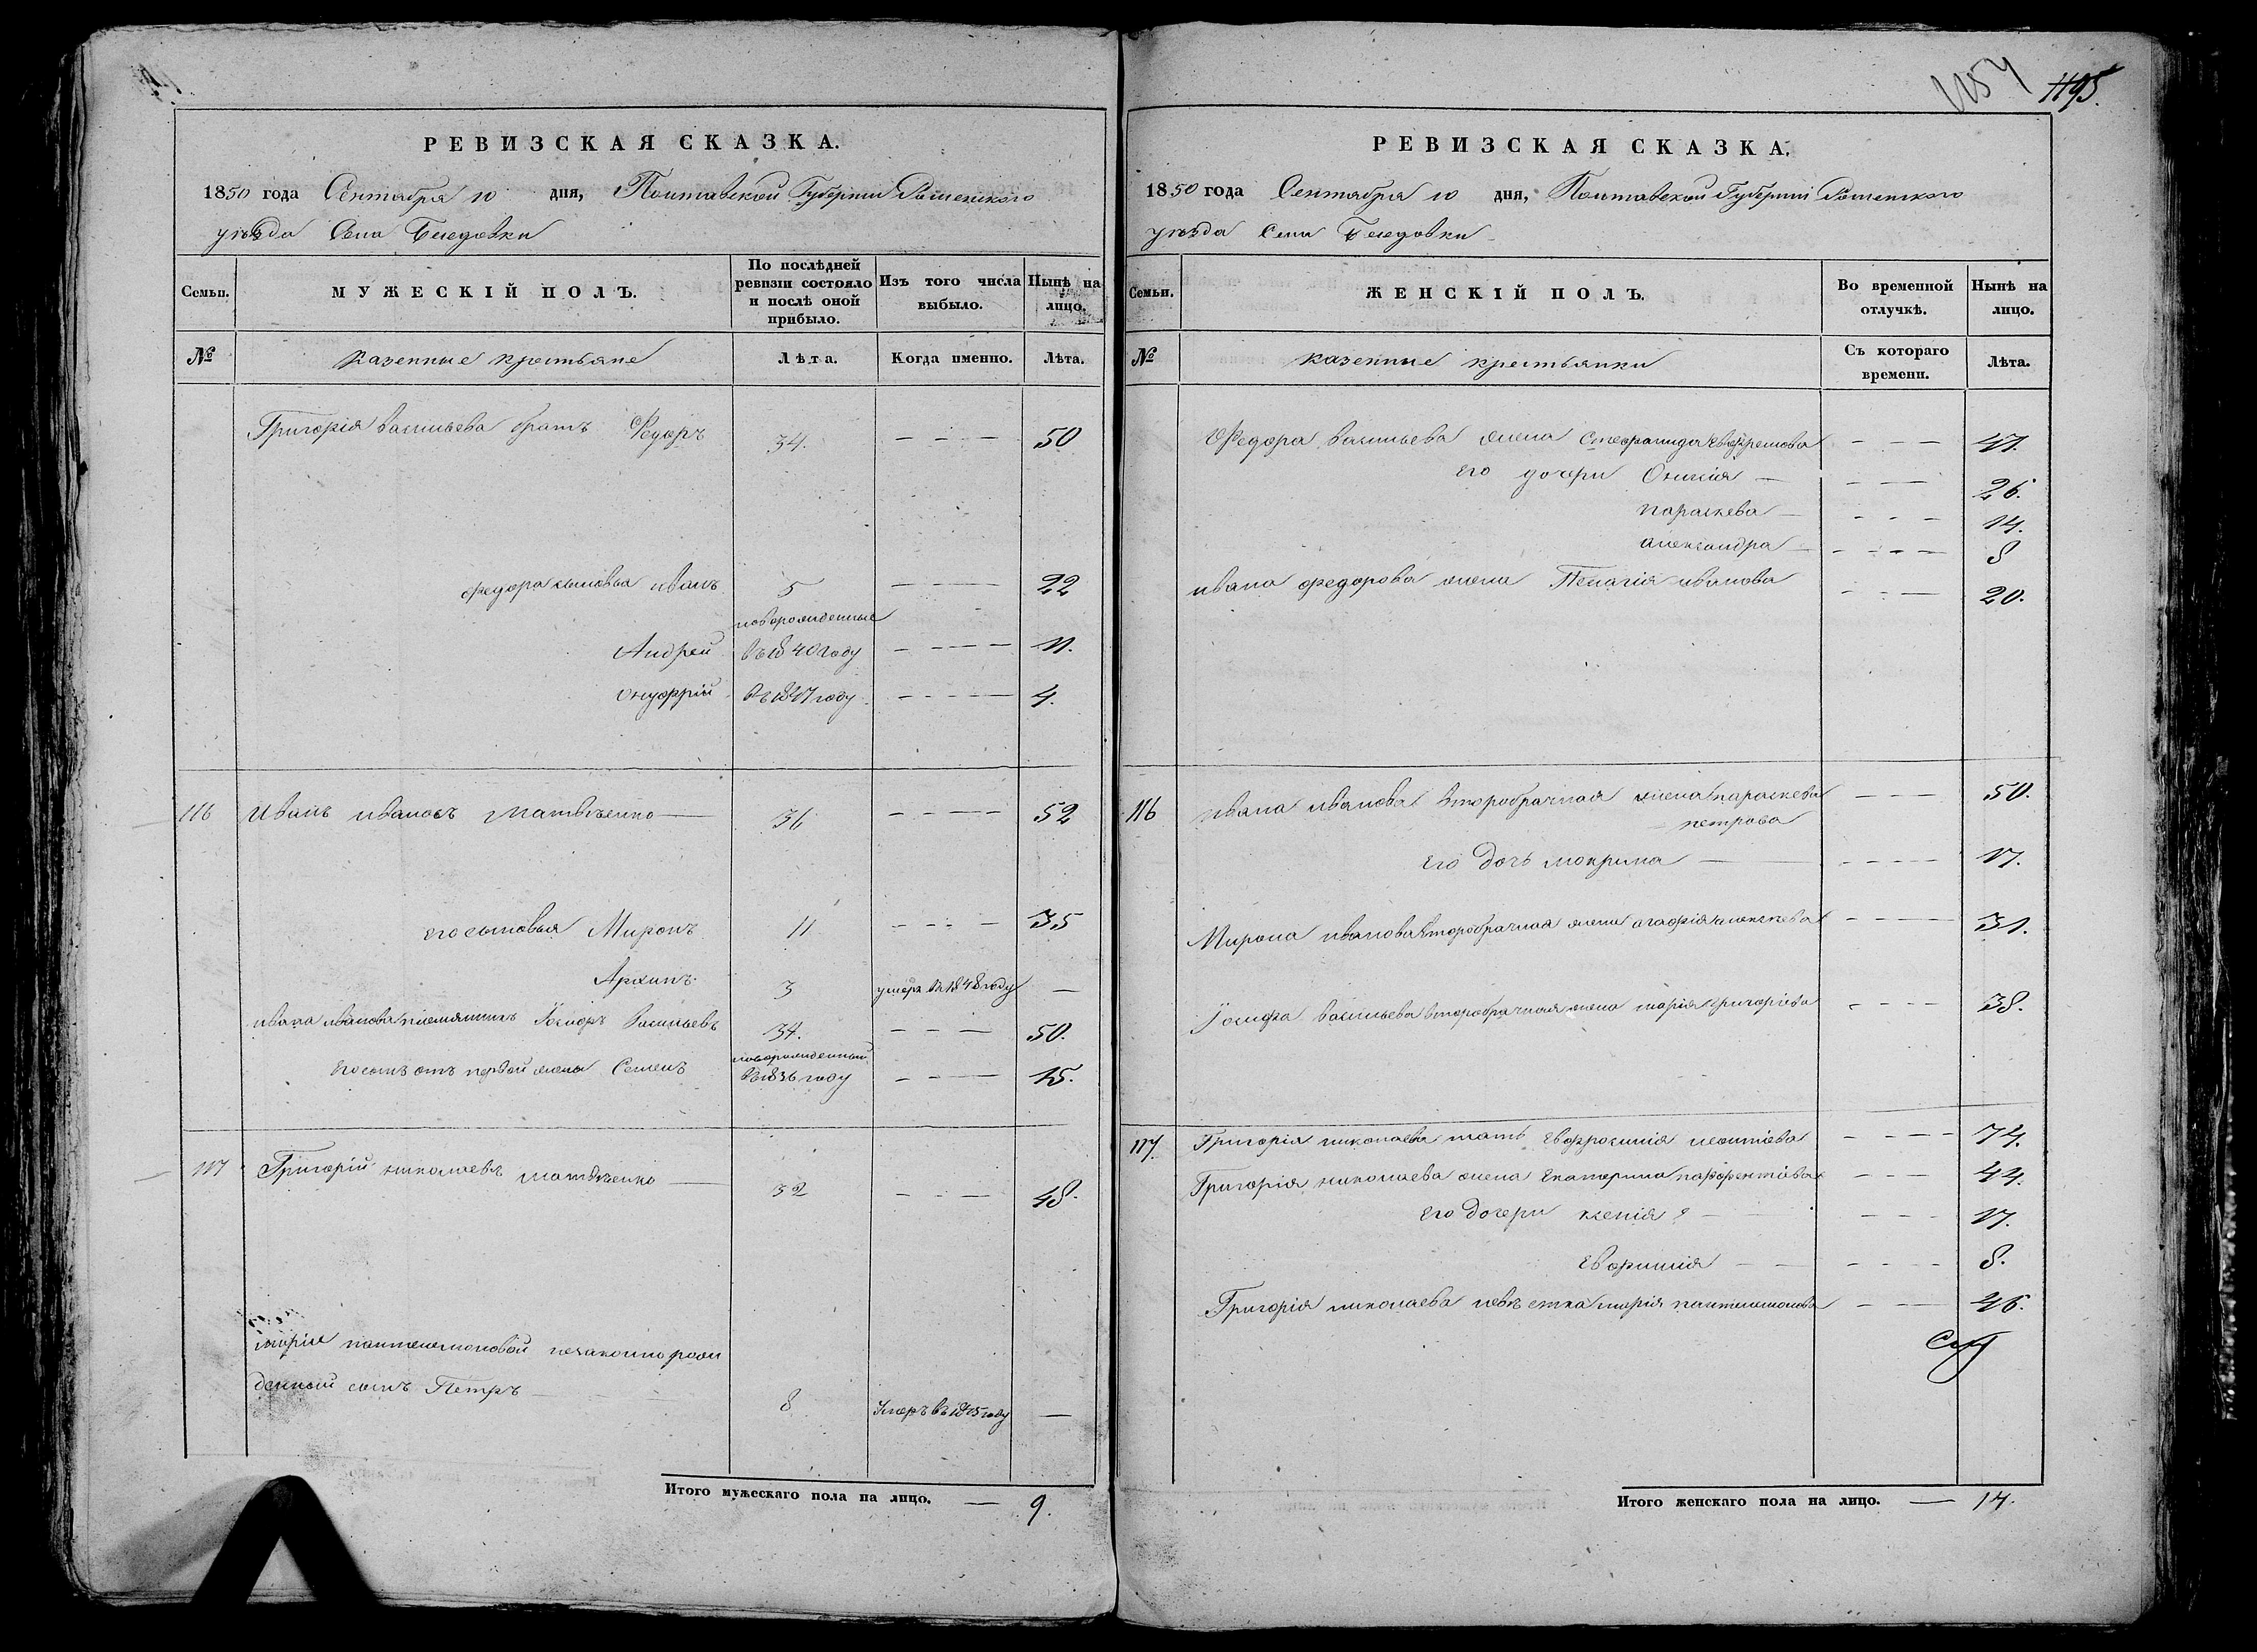 1154 1195.
РЕВИЗСКАЯ СКАЗКА.
1850 года Сентября 10 дня, Полтавской Губернии Роменского
уѣзда Села Беседовки
Семьи. МУЖЕСКІЙ ПОЛЪ. По послѣдней ревизіи состояло и послѣ оной прибыло. Изъ того числа выбыло. Нынѣ на лицо.
№ Казенные крестьяне Лѣта. Когда именно. Лѣта.
Григорія Васильева братъ Федоръ 34. 50
Федора сыновья Иванъ 5 22
новорожденные
Андрей въ 1840 году 11.
Онуфрій въ 1847 году 4.
116 Иванъ Ивановъ Матвѣенко 36 52
его сыновья Миронъ 11 35
Архипъ 3 умеръ въ 1848 году
Ивана Иванова племянникъ Іосифъ Васильевъ 34. 50.
новорожденный
его сынъ отъ первой жены Семенъ въ 1836 году 15.
117 Григорій Николаевъ Матвѣенко 32 48.
Маріи Пантелемоновой незаконнорож
денный сынъ Петръ 8 Умеръ въ 1845 году
Итого мужескаго пола на лицо. 9.
РЕВИЗСКАЯ СКАЗКА.
1850 года Сентября 10 дня, Полтавской Губерніи Роменского
уѣзда Села Беседовки
Семьи. ЖЕНСКІЙ ПОЛЪ. Во временной отлучкѣ. Нынѣ на лицо.
№ Казенные крестьянки Съ котораго времени. Лѣта.
Федора Васильева жена Стефанида Евфремова 47.
его дочери Оникія 26.
Параскева 14.
Александра 8
Ивана Федорова жена Пелагія Иванова 20.
116 Ивана Иванова второбрачная жена Параскева 50.
Петрова
его дочь Мокрина 17.
Мирона Иванова второбрачная жена Агафія Алексѣева 31.
Іосифа Васильева второбрачная жена Марія Григоріева 38.
117. Григорія Николаева мать Евфросинія Леонтіева 74.
Григорія Николаева жена Екатерина Парфентіева 44.
его дочери Ксенія 17.
Евфимія 8.
Григорія Николаева невѣстка Марія Пантелемонова 46.
Итого женскаго пола на лицо. 14.